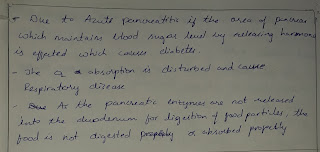 * Due to Acute pancreatitis if the area of pancreas
which maintains blood sugar level by releasing hormones
is effected which causes diabetes.
- The absorption is disturbed and cause
Respiratory disease
- As the pancreatic enzymes are not released
into the duodenum for digestion of food particles, the
food is not digested & absorbed properly